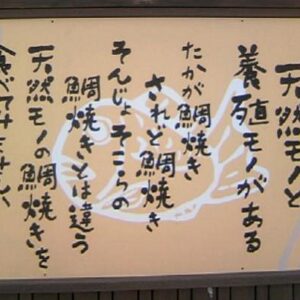 天然モノと
養殖モノがある
たかが鯛焼き
されど鯛焼き
そんじょそこらの
鯛焼きとは違う
天然モノの鯛焼きを
食べてみなはれ